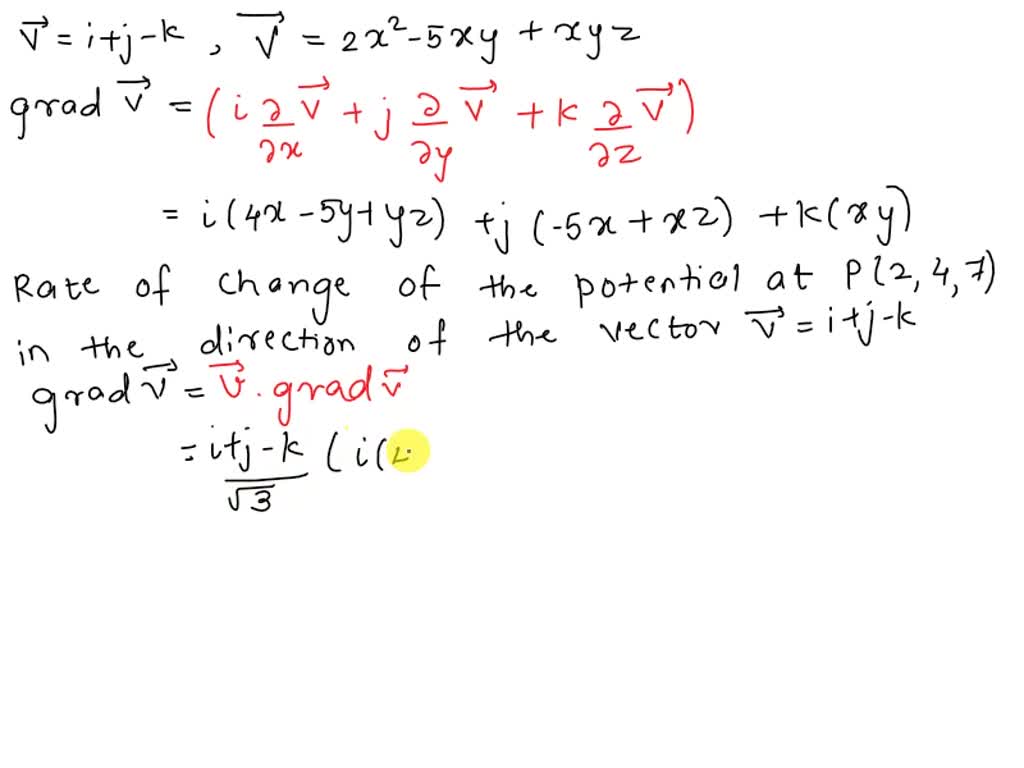 v⃗ = i+j-k , V⃗ = 2x²-5xy + xyz
grad V⃗ = (i ∂/∂x V⃗ + j ∂/∂y V⃗ + k ∂/∂z V⃗)
= i(4x-5y+yz) +j(-5x+xz) +k(xy)
Rate of change of the potential at P(2,4,7)
in the direction of the vector v⃗ = i+j-k
grad V⃗ = v⃗ . grad v⃗
= i+j-k/√3 (i(4